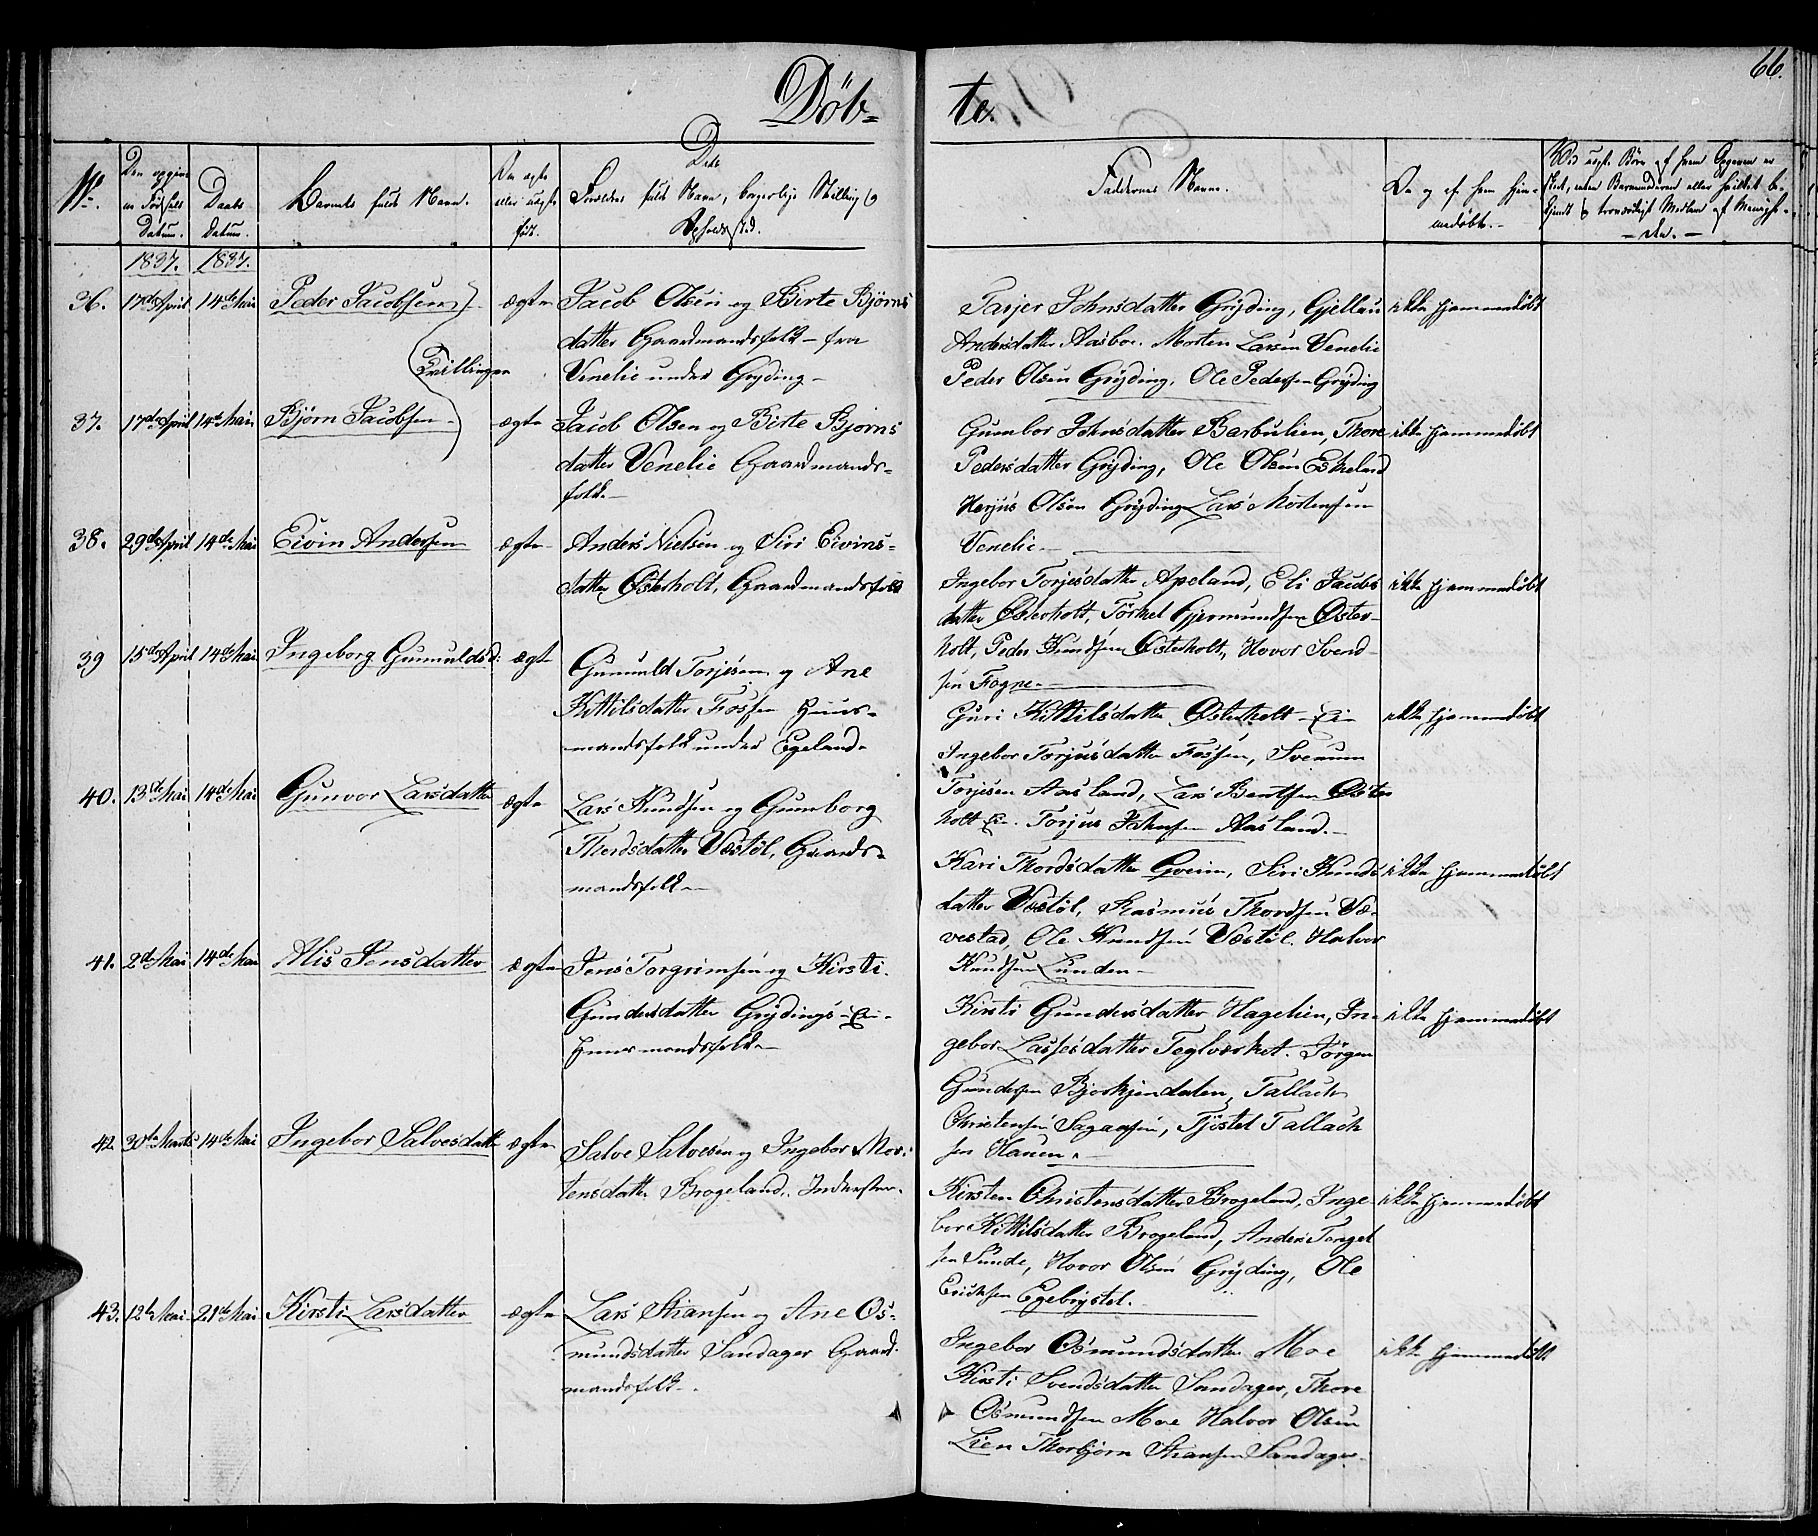 66.
Døb- te.
No.
Datum.
Daabs Datum.
Barnets fulde Navn.
født.
Forældres fulde Navn, borgerlige Stilling og
Opholdssted.
Faddernes Navne.
1837. 1837.
36. 17de April 14de Mai Peder Jacobsen ægte Jacob Olsen og Birte Bjørns
datter Gaardmandsfolk fra
Venelie under Gryding
Tvillinger
Tarjer Johnsdatter Gryding, Gjellau
Andersdatter Aasbo. Morten Larsen Venelie
Peder Olsen Gryding, Ole Pedersen Gryding
ikke hjemmedøbt
37. 17de April 14de Mai Bjørn Jacobsen ægte Jacob Olsen og Birte Bjørns
datter Venelie Gaardmands-
folk
Gumbor Johnsdatter Barbulien, Thore
Pedersdatter Gryding, Ole Olsen Eskeland
Herjus Olsen Gryding Lars Mortensen
Venelie
ikke hjemmedøbt
38. 29de April 14de Mai Eivin Andersen ægte Anders Nielsen og Siri Eivins-
datter Østerholt, Gaardmandsfolk
Ingebor Torjesdatter Apeland, Eli Jacobs
datter Østerholt, Törkel Gjermundsen Øster-
holt, Peder Knudsen Østerholt, Hovor Svend-
sen Fogne
ikke hjemmedøbt
39 15de April 14de Mai Ingeborg Gunuldsd: ægte Gunuld Torjesen og Ane
Kittilsdatter Fossen Huus-
mandsfolk under Egeland
Guri Kittilsdatter Østerholt Ei-
Ingebor Torjusdatter Fossen, Svenum
Torjesen Aasland, Lars Bentsen Øster
holt Ei. Torjus Johnsen Aasland.
ikke hjemmedøbt
40. 13de Mai 14de Mai Gunvor Larsdatter ægte Lars Knudsen og Gumborg
Thordsdatter Vestøl, Gaards-
mandsfolk
Kari Thordsdatter Gveim, Siri Knuds
datter Vestøl, Rasmus Thordsen Væ-
vestad, Ole Knudsen Vestøl. Halvor
Knudsen Lunden
ikke hjemmedøbt
41. 2de Mai 14de Mai Alis Jensdatter ægte Jens Torgrimsen og Kirsti
Gundersdatter Grydings-Ei-
Huusmandsfolk
Kirsti Gundersdatter Hagelien, In-
gebor Lassesdatter Teglværket. Jörgen
Gundersen Bjorkjendalen, Tallach
Christensen Sagaasen, Tjöstel Tallach
sen Hauen.
ikke hjemmedøbt
42 30te Marts 14de Mai Ingebor Salvesdatter ægte Salve Salvesen og Ingebor Mor-
tensdatter Brogeland. Inderster.
Kirsten Christensdatter Brogeland, Inge
bor Kittilsdatter Brogeland, Anders Tanget
sen Sunde, Hovor Olsen Gryding, Ole
Ericksen Egebrystel.
ikke hjemmedøbt
43. 12te Mai 21de Mai Kirsti Larsdatter ægte Lars Stiansen og Ane Os-
mundsdatter Sandager Gaard-
mandsfolk
Ingebor Osmundsdatter Moe
Kirsti Svendsdatter Sandager, Thore
Osmundsen Moe Halvor Olsen
Lien Thorbjørn Stiansen Sandager
ikke hjemmedøbt